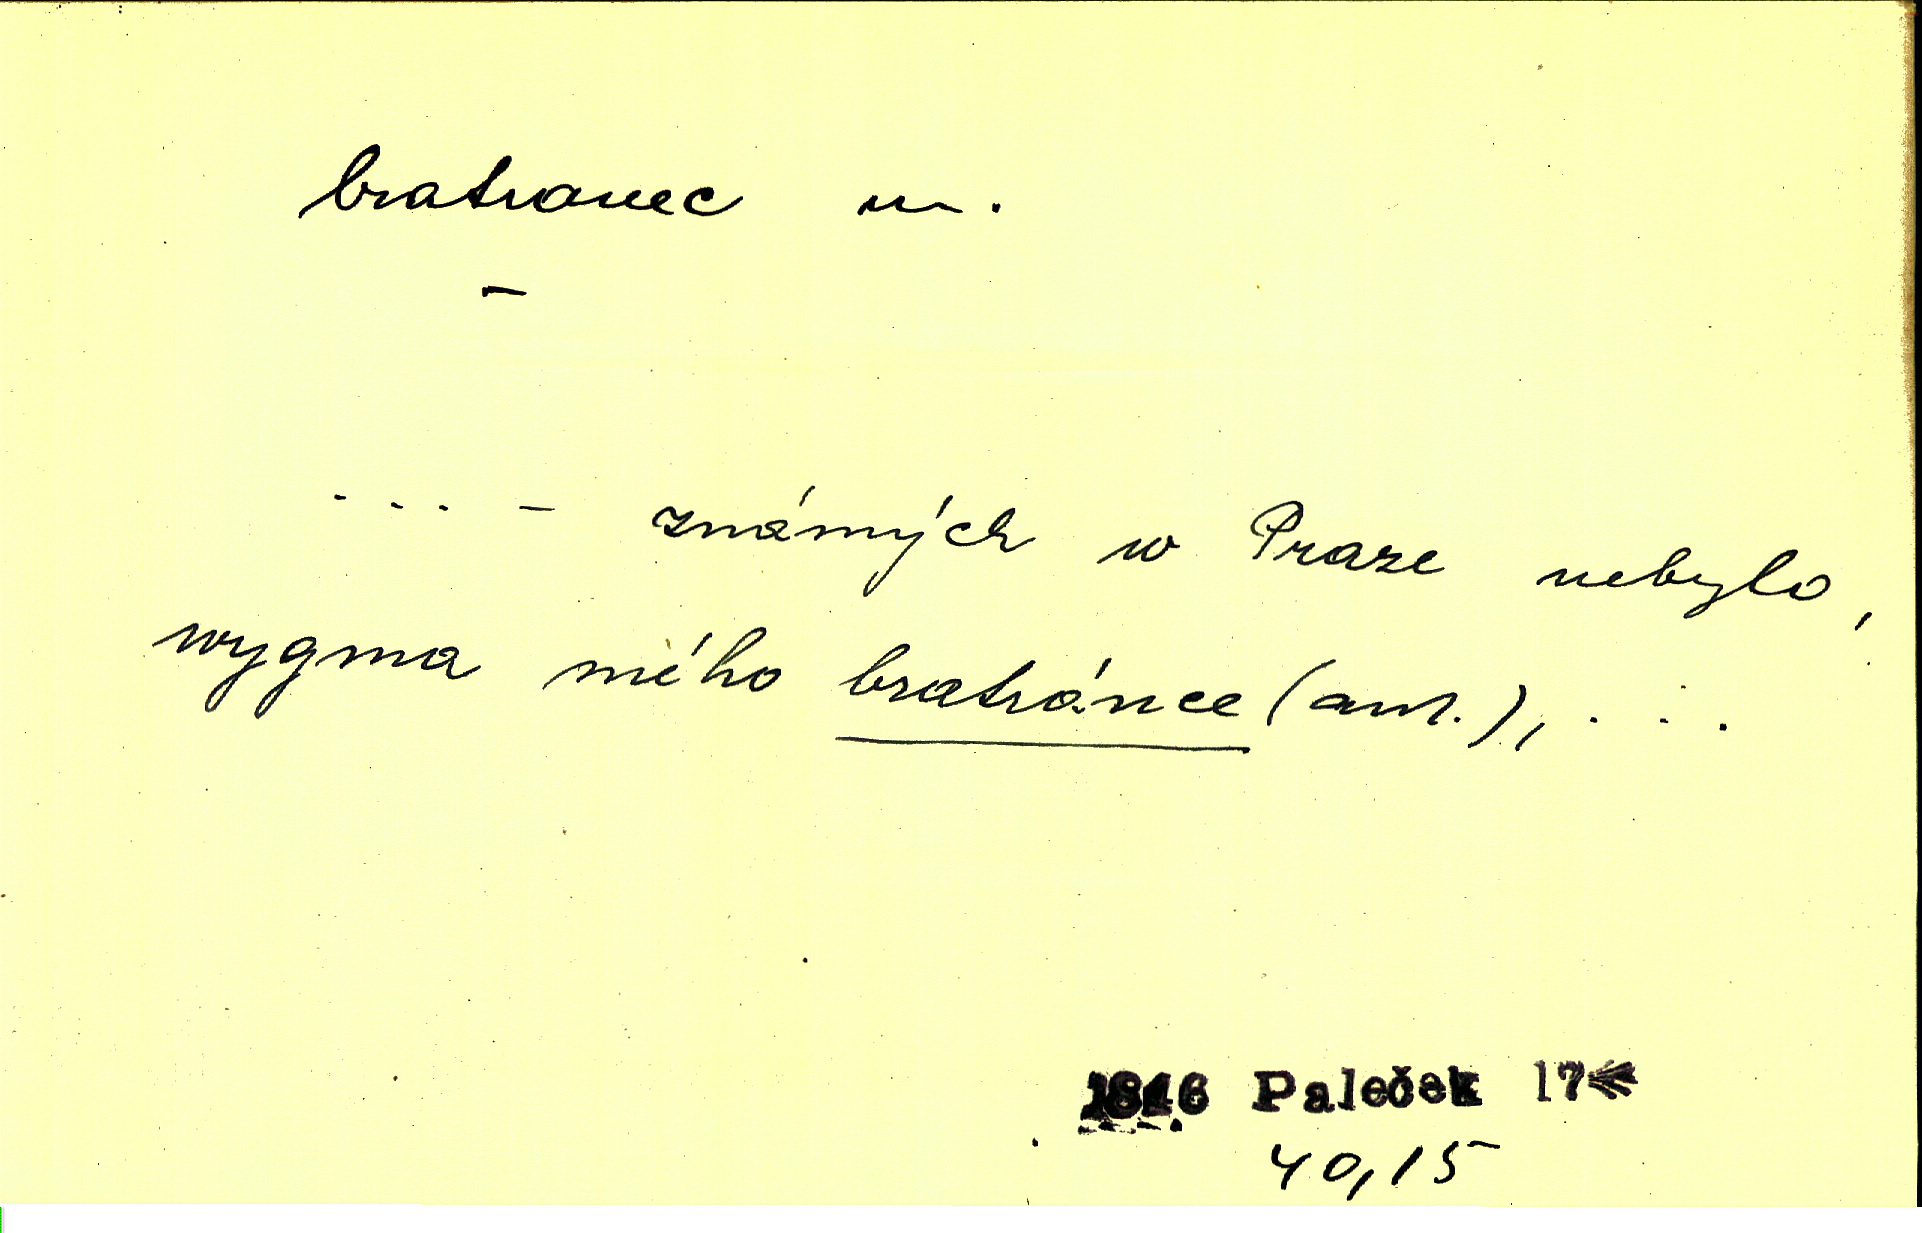 bratranec m.
–
... – známých w Praze nebylo,
wygma mého bratránce (aut.), ...
1846 Paleček 17
40,15